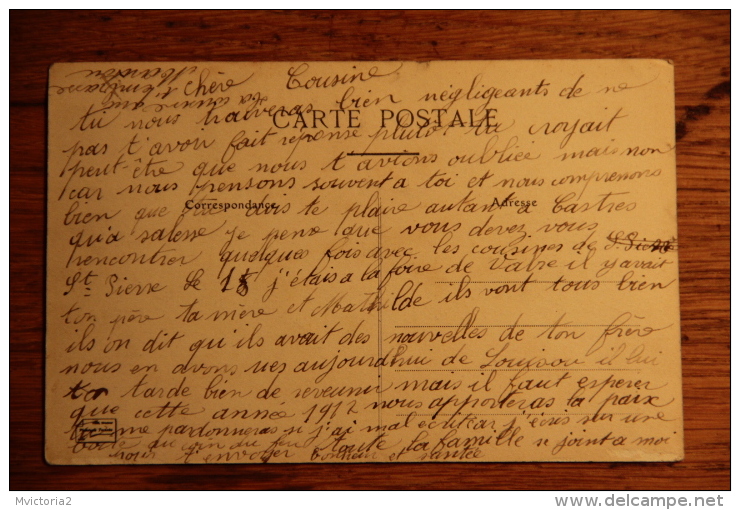 Chère Cousine
tu nous trouveras bien négligeants de ne
CARTE POSTALE
pas t'avoir fait réponse plutot tu croyait
peut-être que nous t'avions oubliée mais non
car nous pensons souvent a toi et nous comprenons
Correspondance
Adresse
bien que dois te plaire autant a Castres
qu'a je pense que vous devez vous
rencontrer quelques fois avec les cousines de
St Pierre le 18 j'étais a la foire de Vabre il y avait
ton père ta mère et Mathilde ils vont tous bien
ils on dit qu'ils avait des nouvelles de ton frère
nous en avons ues aujourd'hui de Louisou il lui
tarde bien de revenir mais il faut esperer
que cette année 1917 nous apporteras la paix
tu me pardonneras si j'ai mal écrit car j'écris sur une
du feu toute la famille se joint a moi
pour t'envoyer bonheur et santée
Mvictoria2
www.delcampe.net